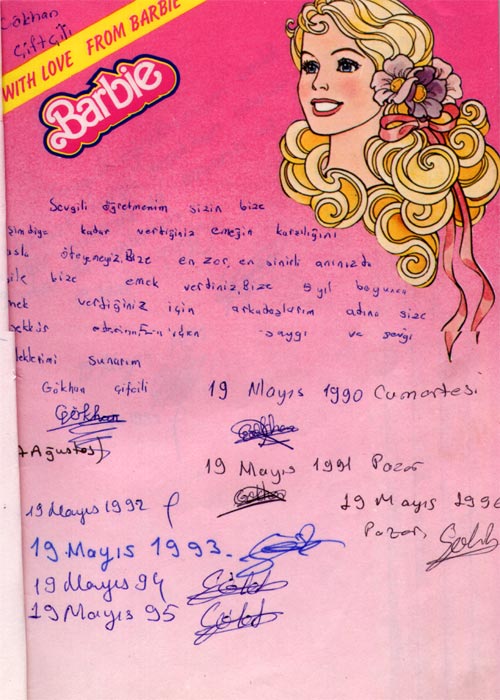 Gökhan
Çiftçili
WITH LOVE FROM BARBIE
Barbie
Sevgili öğretmenim sizin bize
şimdiye kadar verdiğiniz emeğin karşılığını
asla ödeyemeyiz. Bize en zor, en sinirli anınızda
bile bize emek verdiniz. Bize 5 yıl boyunca
emek verdiğiniz için arkadaşlarım adına size
ve sevgi
saygı
sunarım
Gökhan Çifcili
19 Mayıs 1990 Cumartesi
Gökhan
7 Ağustos
19 Mayıs 1991 Pazar
19 Mayıs 1992
19 Mayıs 1996
Pazar
19 Mayıs 1993
19 Mayıs 94
19 Mayıs 95